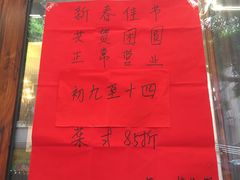 新春佳节
共贺团圆
正常营业
初九至十四
菜式85折